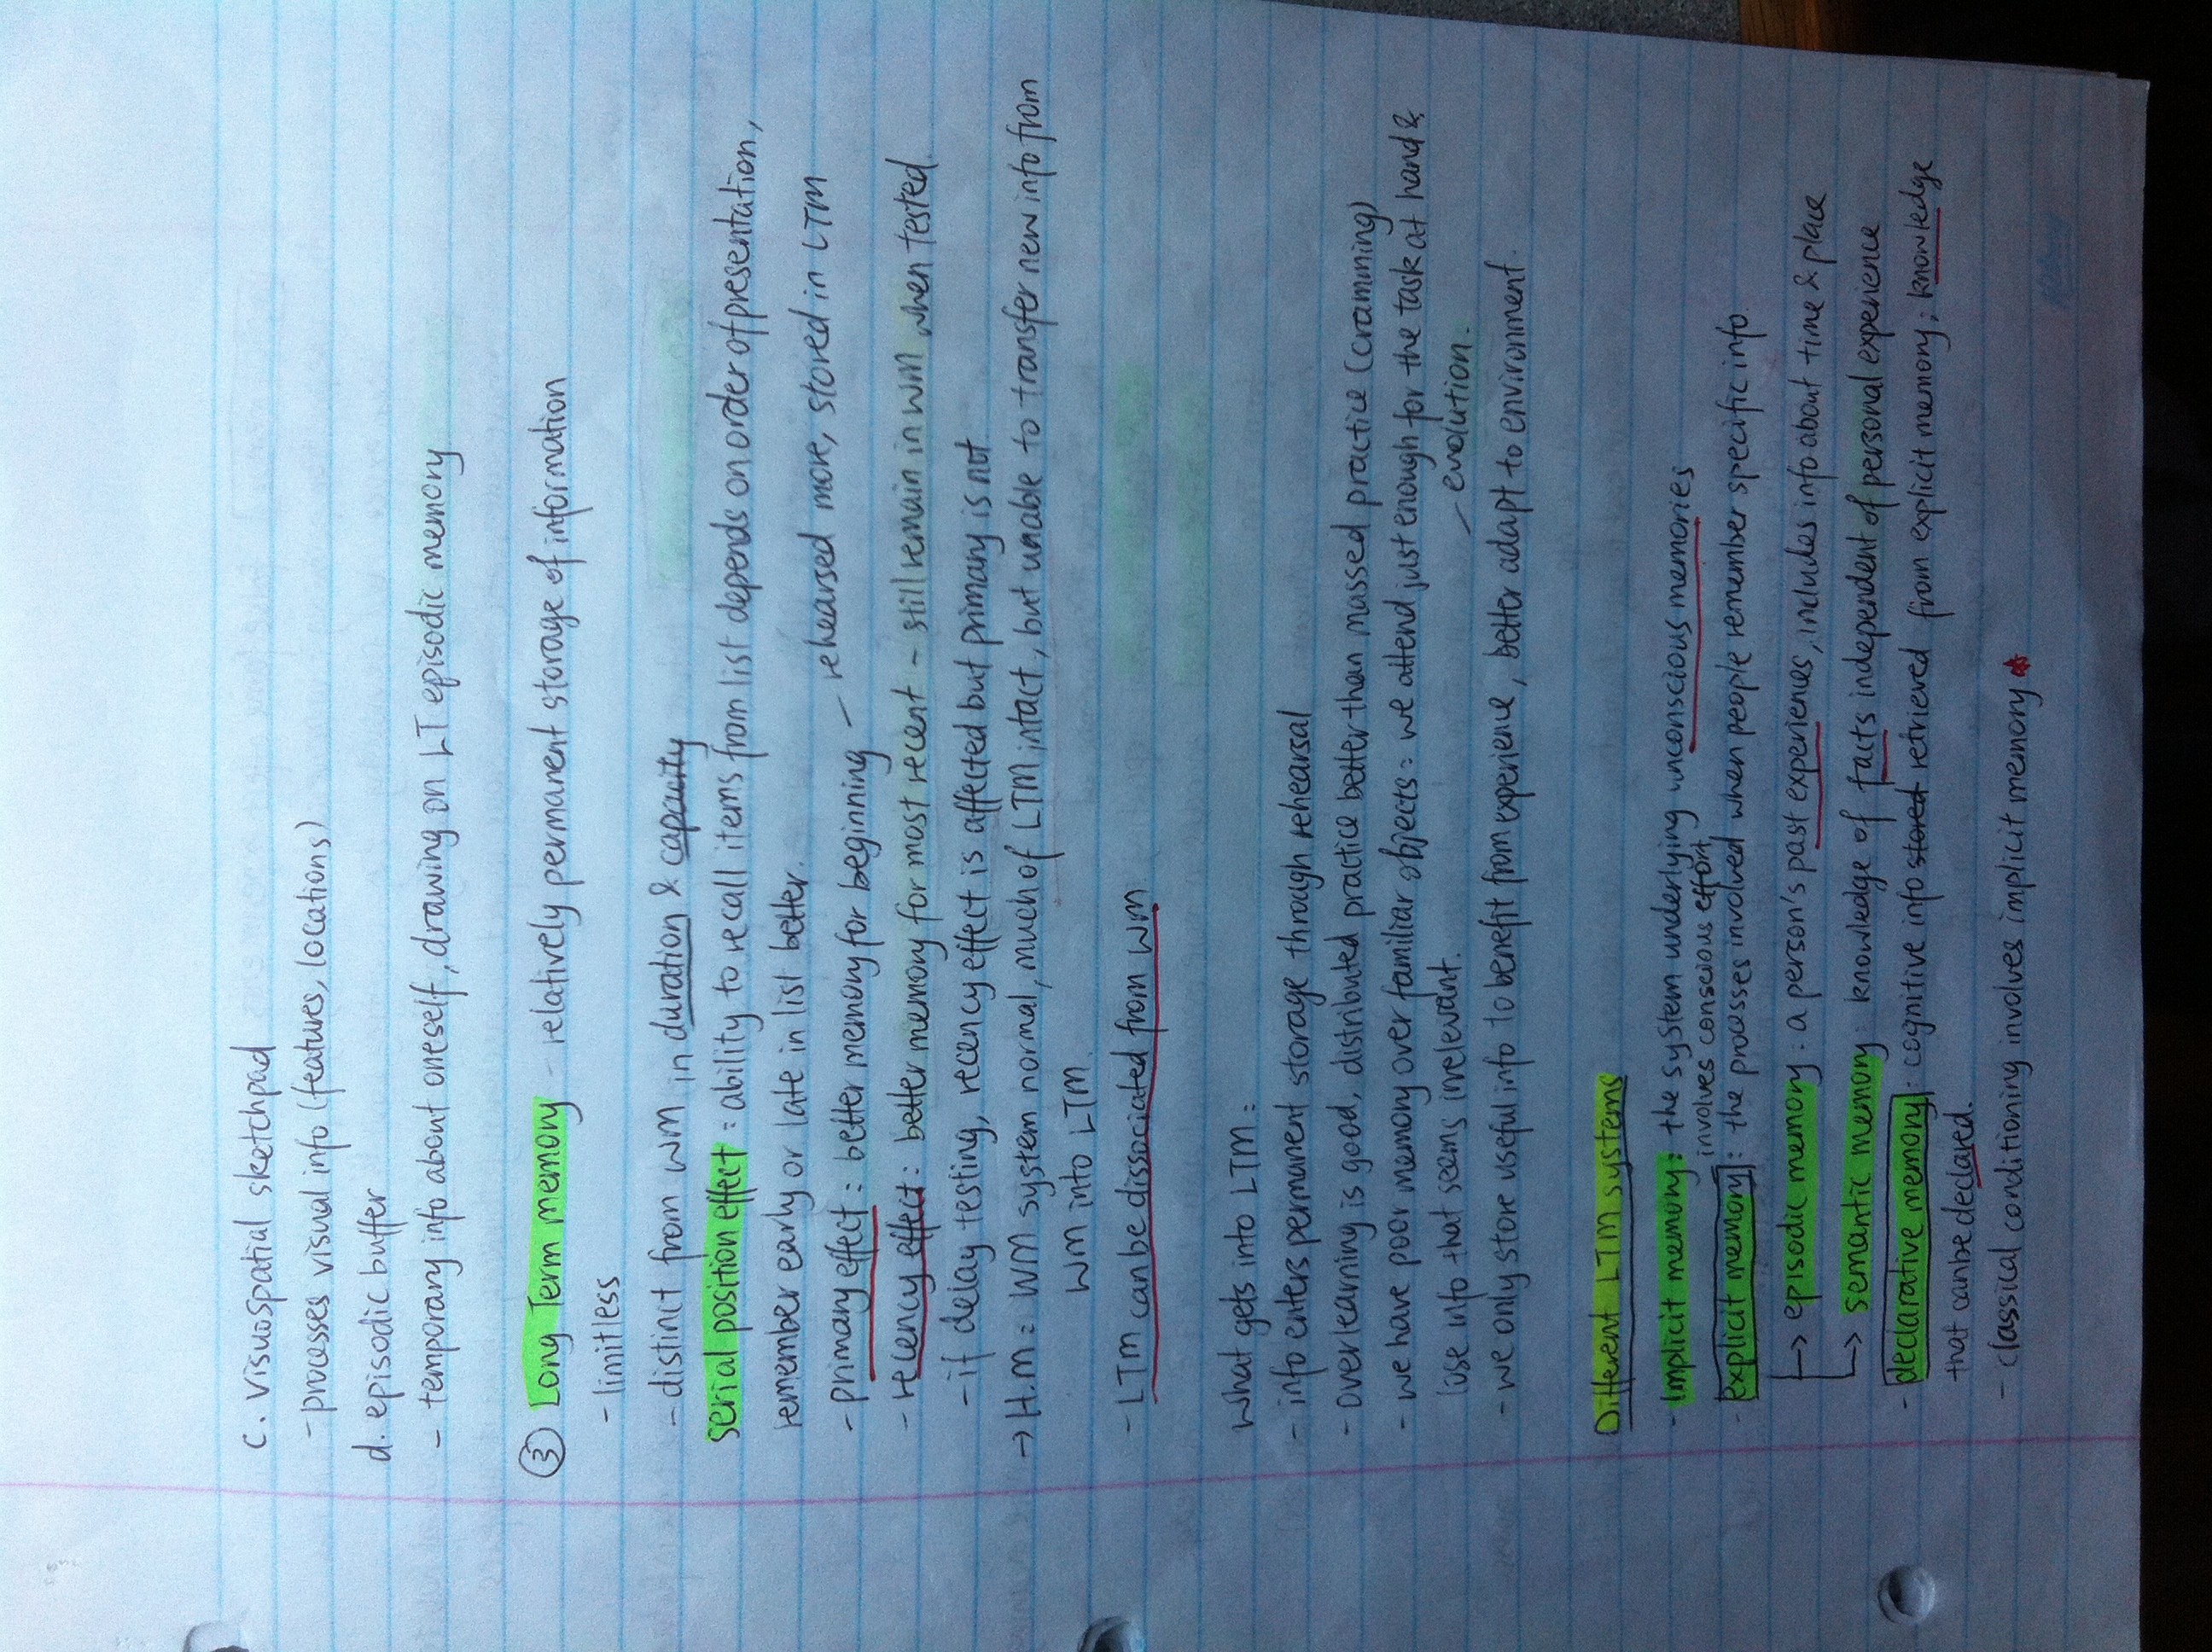 c. visuospatial sketchpad
- processes visual info (features, locations)
d. episodic buffer
- temporary info about oneself, drawing on LT episodic memory
③ Long Term memory - relatively permanent storage of information
- limitless
- distinct from WM in duration & capacity
serial position effect = ability to recall items from list depends on order of presentation,
remember early or late in list better.
- primary effect = better memory for beginning - rehearsed more, stored in LTM
- recency effect = better memory for most recent - still remain in WM when tested.
- if delay testing, recency effect is affected but primary is not
→ H.M = WM system normal, much of LTM intact, but unable to transfer new info from
WM into LTM.
- LTM can be dissociated from WM.
What gets into LTM =
- info enters permanent storage through rehearsal
- overlearning is good, distributed practice better than massed practice (cramming)
- we have poor memory over familiar objects = we attend just enough for the task at hand &
lose info that seems irrelevant. - evolution.
- we only store useful info to benefit from experience, better adapt to environment.
Different LTM systems
- Implicit memory: the system underlying unconscious memories
involves conscious effort
- explicit memory: the processes involved when people remember specific info
→ episodic memory: a person's past experiences, includes info about time & place
→ semantic memory: knowledge of facts independent of personal experience
- declarative memory: cognitive info stored retrieved from explicit memory; knowledge
that can be declared.
- classical conditioning involves implicit memory